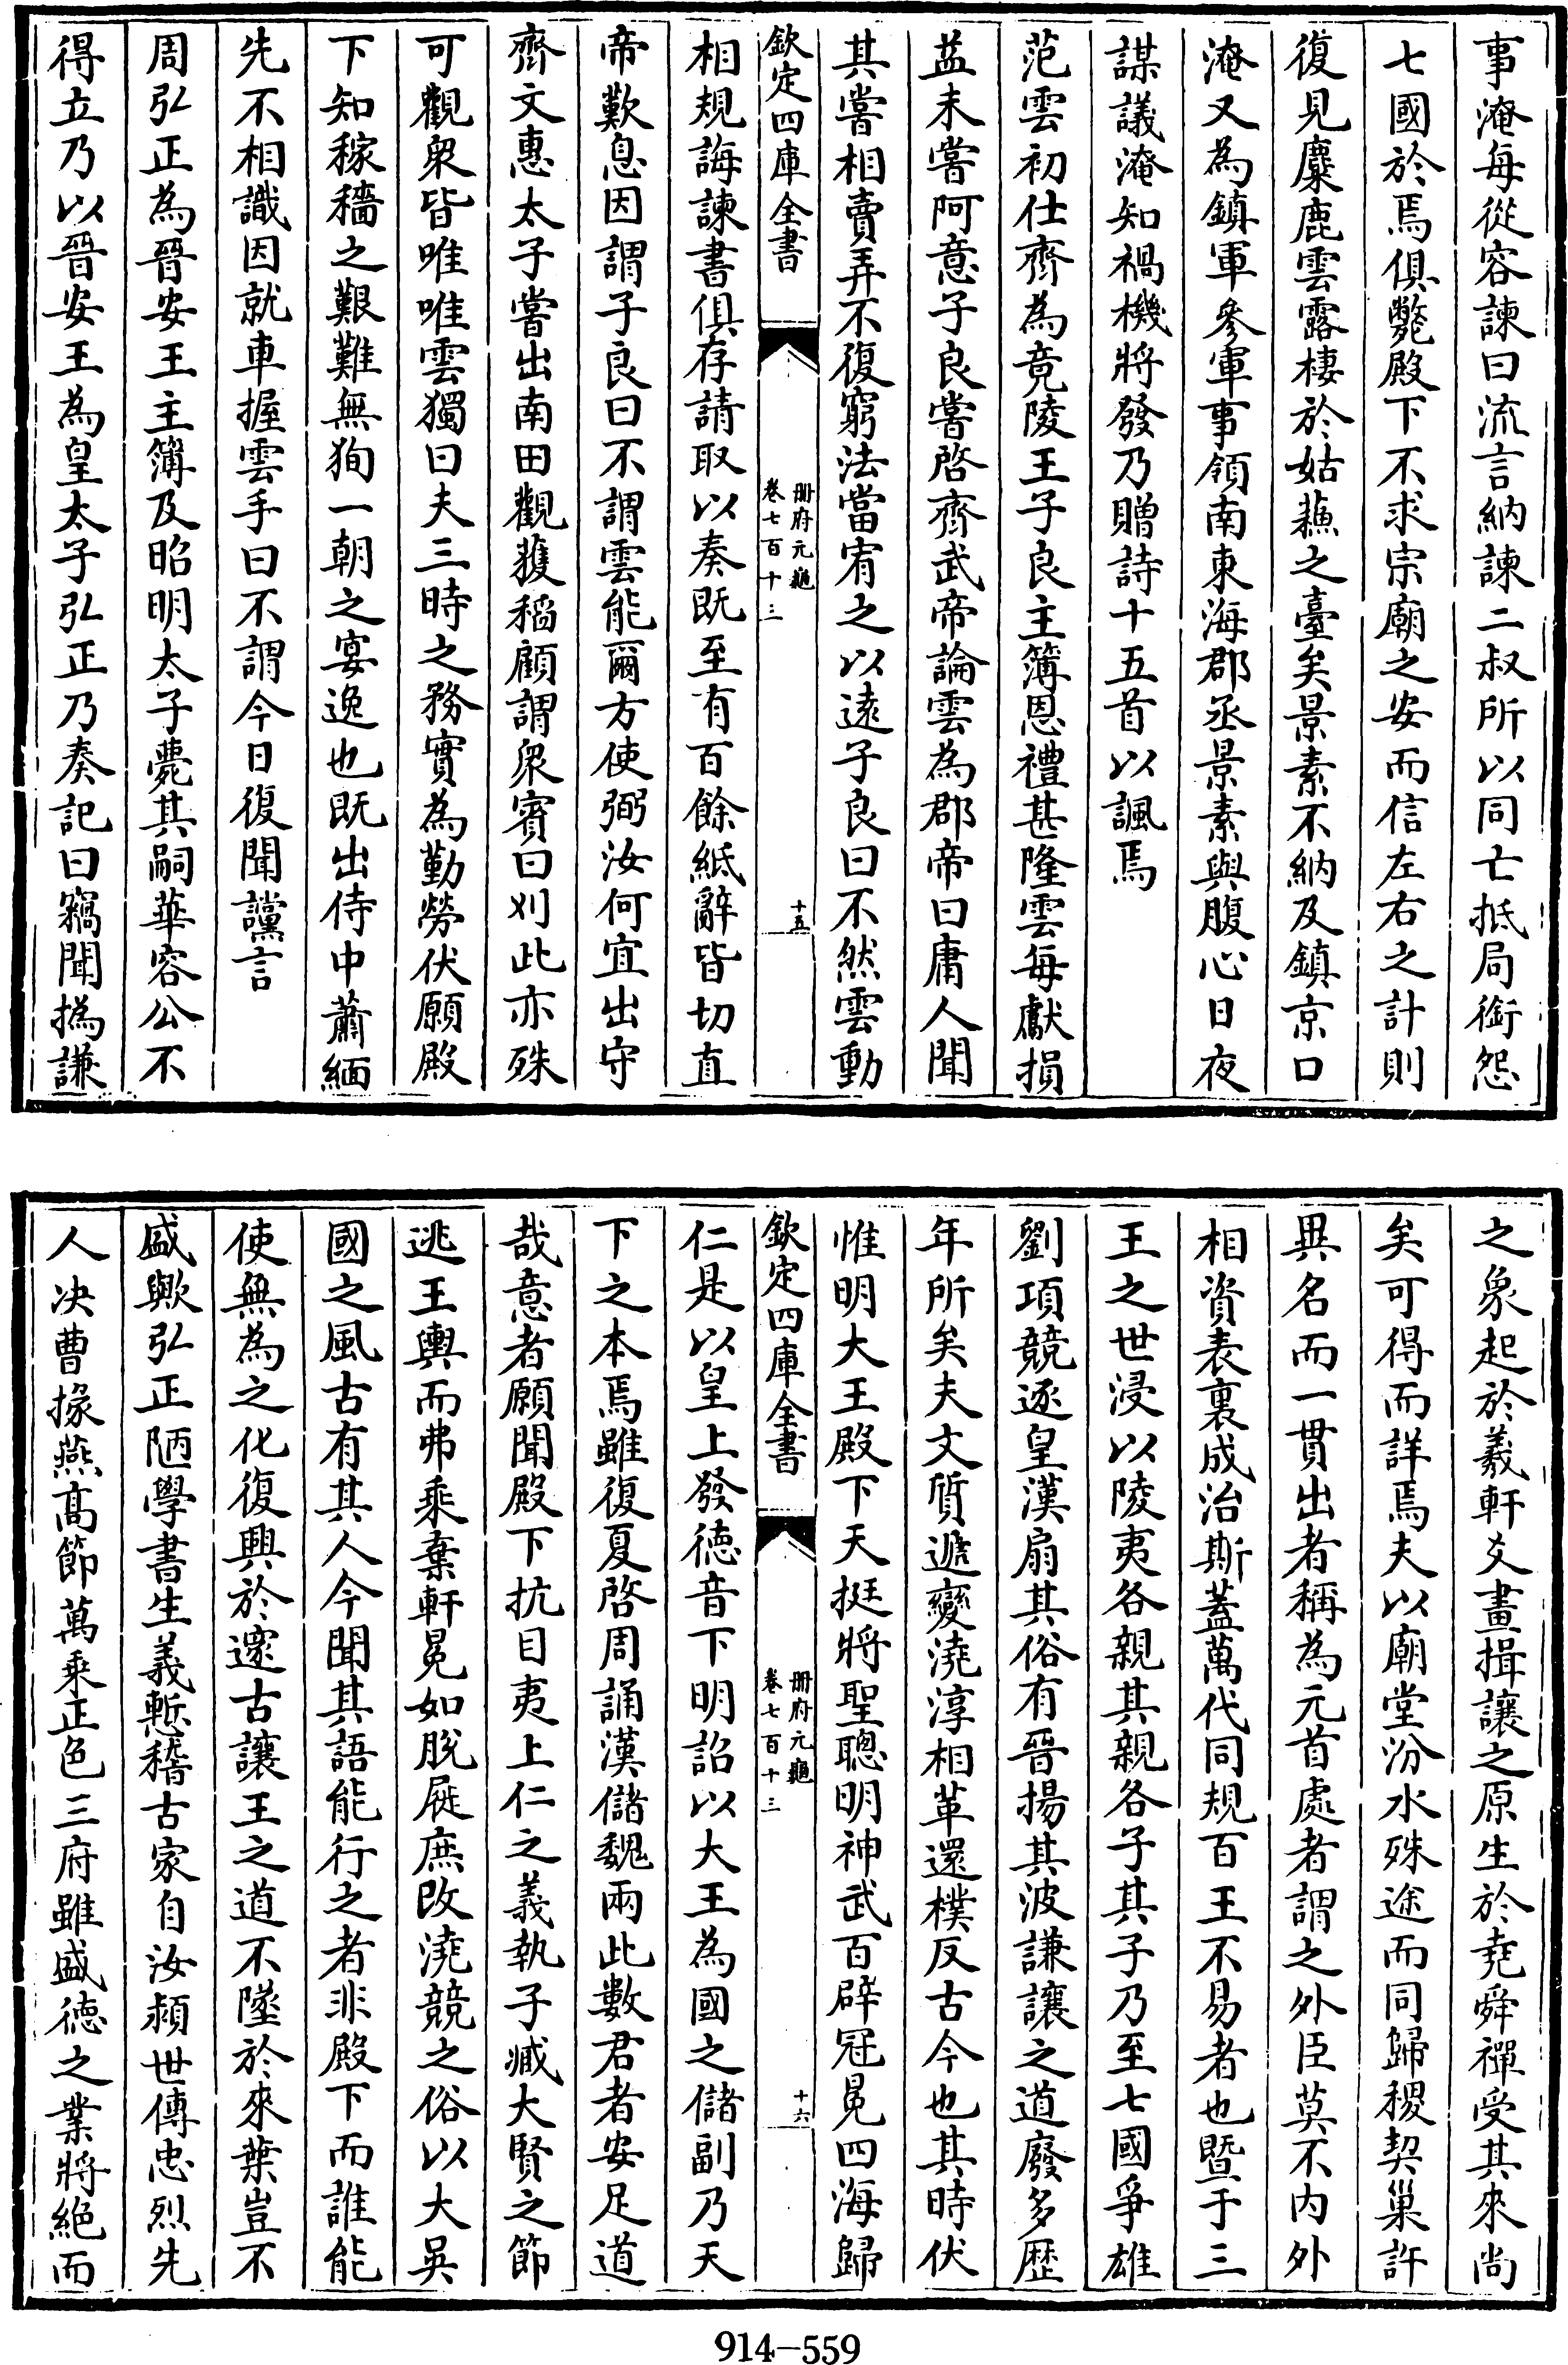 事淹每從容諫曰流言納諫二叔所以同亡抵局銜怨
七國於焉俱斃殿下不求宗廟之安而信左右之計則
復見麋鹿雲露棲於姑蘇之臺矣景素不納及鎮京口
淹又為鎮軍參軍事領南東海郡丞景素與腹心日夜
謀議淹知禍機將發乃贈詩十五首以諷焉
范雲初仕齊為竟陵王子良主簿恩禮甚隆雲每獻損
益未嘗阿意子良嘗啓齊武帝論雲為郡帝曰庸人聞
其嘗相賣弄不復窮法當宥之以遠子良曰不然雲動
欽定四庫全書
冊府元龜
卷七百十三
十五
相規誨諫書俱存請取以奏既至有百餘紙辭皆切直
帝歎息因謂子良曰不謂雲能爾方使弼汝何宜出守
齊文惠太子嘗出南田觀穫稻顧謂衆賓曰刈此亦殊
可觀衆皆唯唯雲獨曰夫三時之務實為勤勞伏願殿
下知稼穡之艱難無狥一朝之宴逸也既出侍中蕭緬
先不相識因就車握雲手曰不謂今日復聞讜言
周弘正為晉安王主簿及昭明太子薨其嗣華容公不
得立乃以晉安王為皇太子弘正乃奏記曰竊聞撝謙
之象起於羲軒爻畫揖讓之原生於堯舜禪受其來尚
矣可得而詳焉夫以廟堂汾水殊途而同歸稷契巢許
異名而一貫出者稱為元首處者謂之外臣莫不内外
相資表裏成治斯蓋萬代同規百王不易者也暨于三
王之世浸以陵夷各親其親各子其子乃至七國爭雄
劉項競逐皇漢扇其俗有晉揚其波謙讓之道廢多歴
年所矣夫文質遞變澆淳相革還樸反古今也其時伏
惟明大王殿下天挺將聖聰明神武百辟冠冕四海歸
欽定四庫全書
冊府元龜
卷七百十三
十六
仁是以皇上發德音下明詔以大王為國之儲副乃天
下之本焉雖復夏啓周誦漢儲魏兩此數君者安足道
哉意者願聞殿下抗目夷上仁之義執子臧大賢之節
逃王輿而弗乘棄軒冕如脫屣庶改澆競之俗以大吳
國之風古有其人今聞其語能行之者非殿下而誰能
使無為之化復興於邃古讓王之道不墜於來葉豈不
盛歟弘正陋學書生義慙稽古家自汝潁世傳忠烈先
人决曹掾燕高節萬乘正色三府雖盛德之業將絕而
914-559